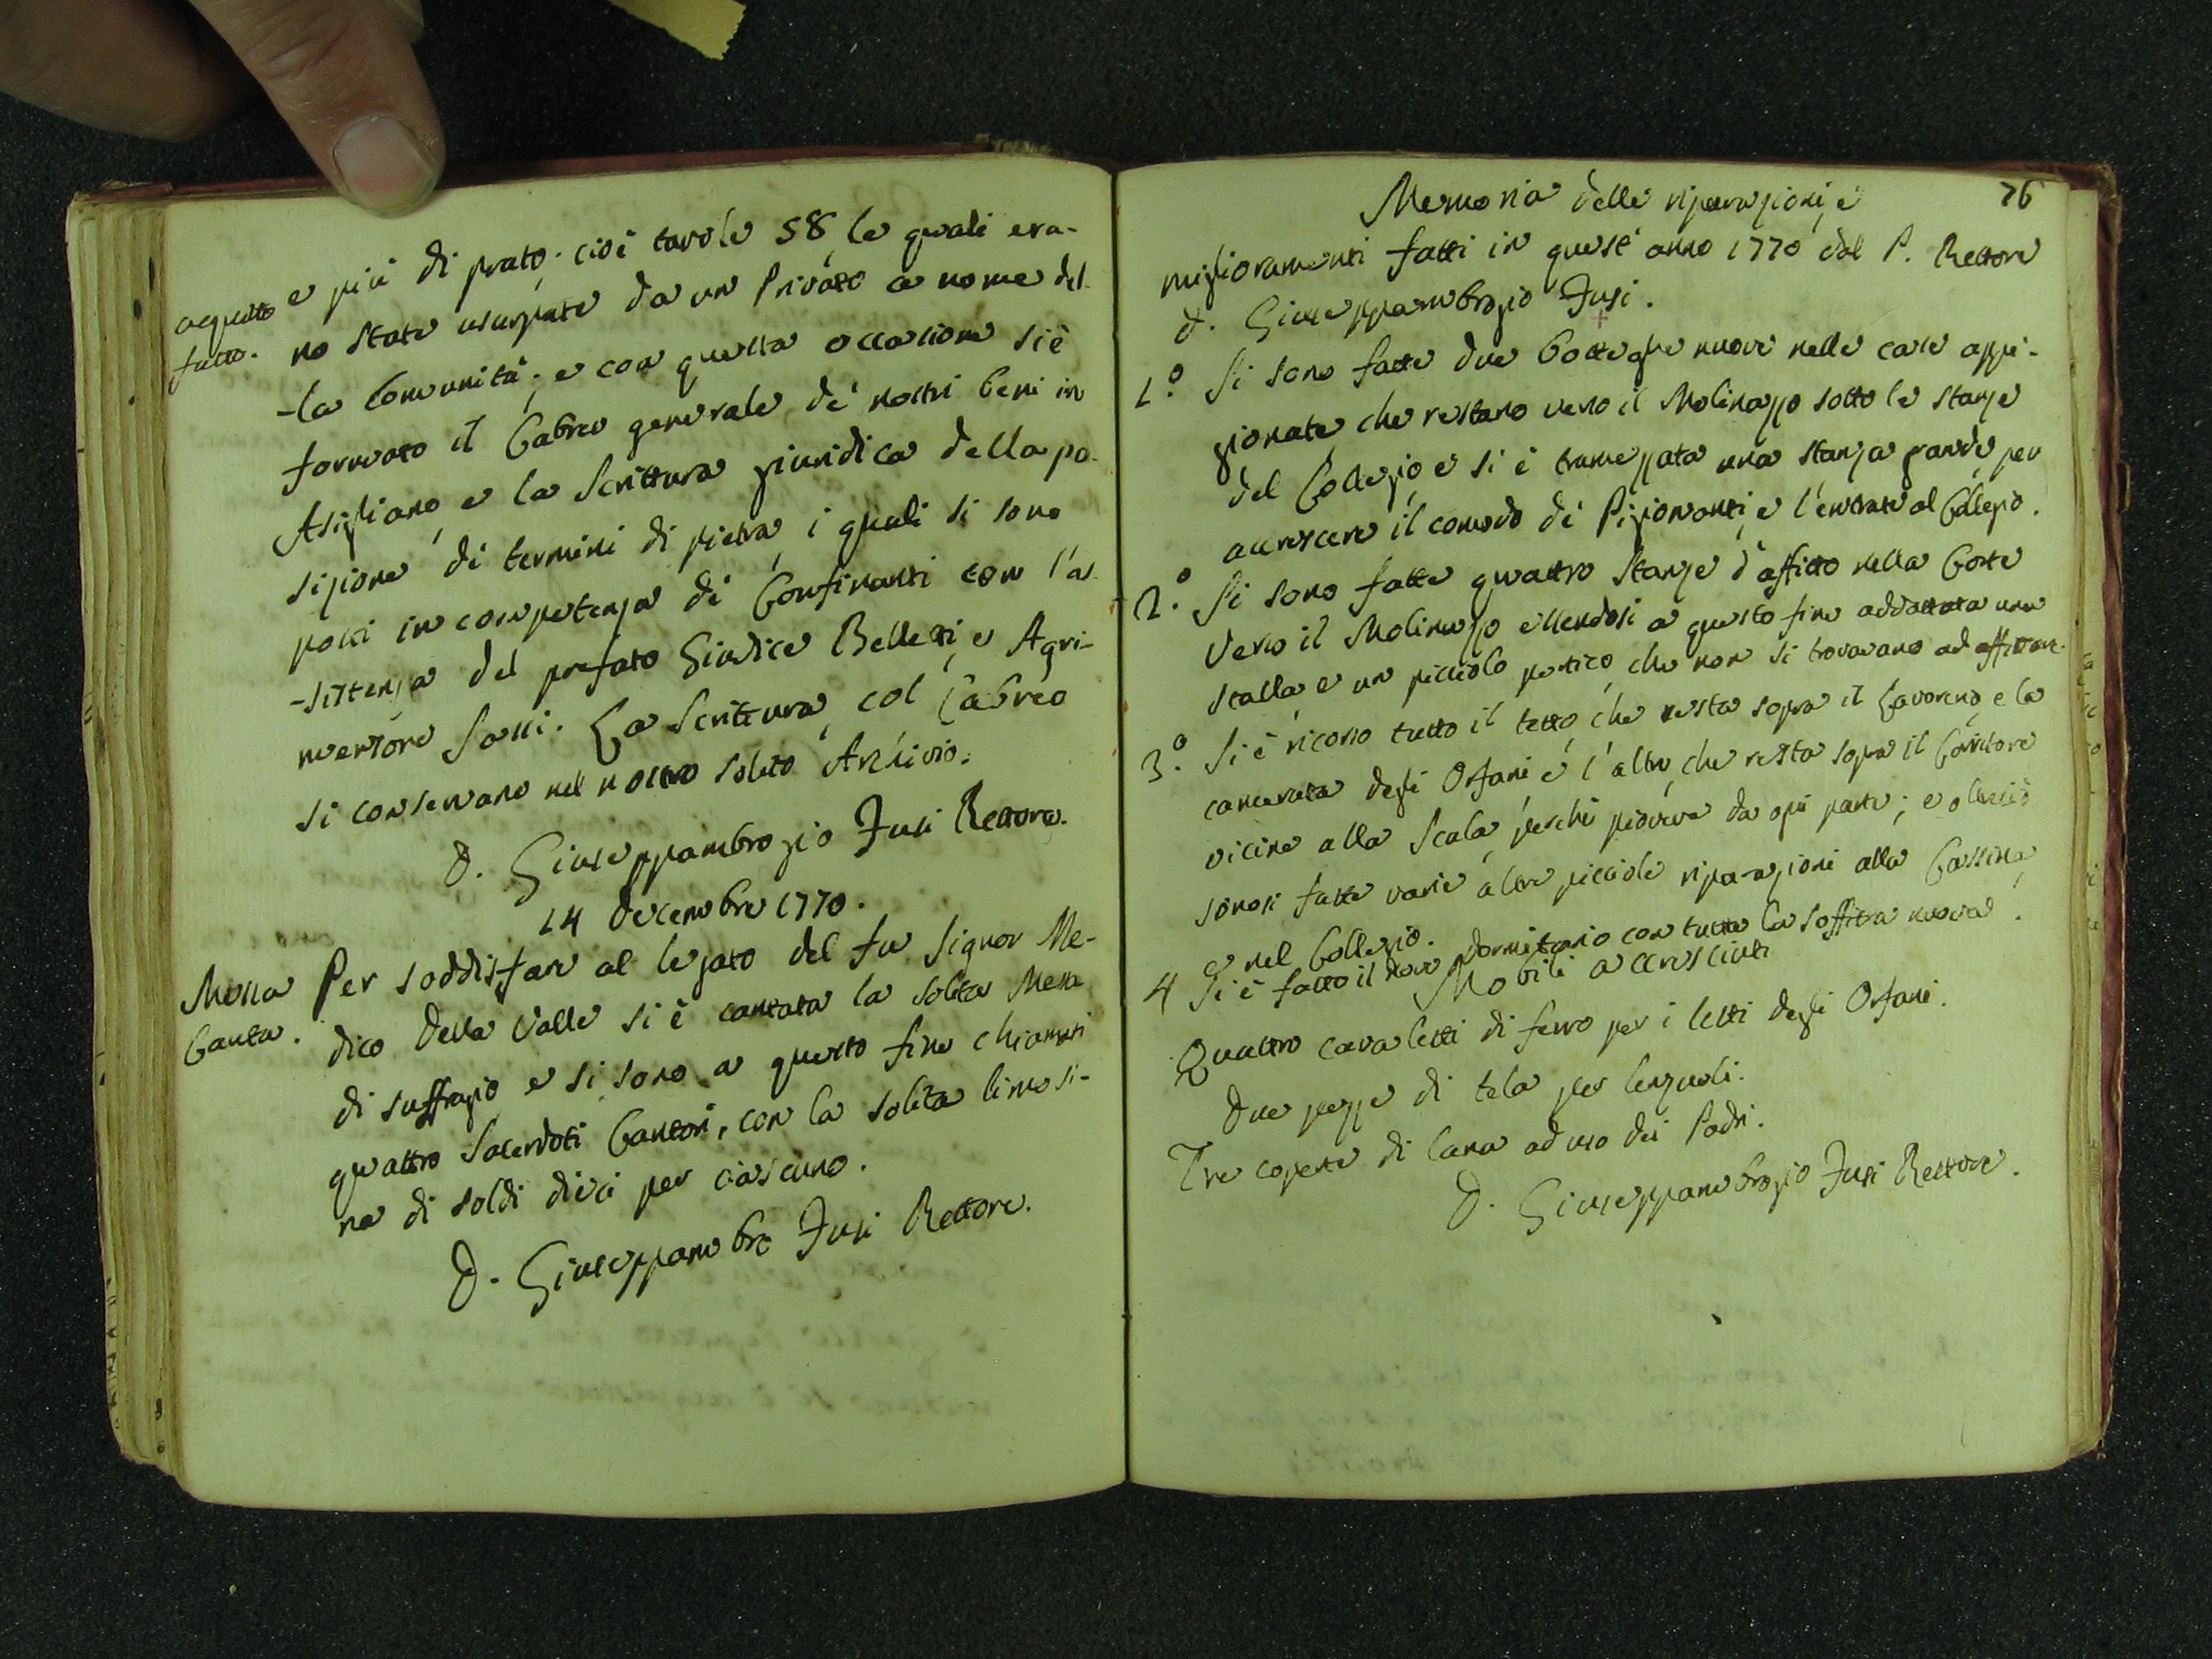 acquisto
fatto.
e più di prato. cioè tavole 58, le quali era-
no state usurpate da un Privato a nome del-
-la Comunità; e con questa occasione si è
formato il Cabreo generale de' nostri beni in
Asigliano, e la Scrittura giuridica della po-
sizione di termini di pietra, i quali si sono
posti in competenza di Confinanti con l'as-
-sistenza del prefato Giudice Belletti, e Agri-
mensore Sassi. La Scrittura col Cabreo
si conservano nel nostro solito Archivio.
D. Giuseppambrogio Fusi Rettore.
14 Decembre 1770.
Messa
Canta.
Per soddisfare al legato del fu Signor Me-
dico Della Valle si è cantata la solita Messa
di suffragio e si sono a questo fine chiamati
quattro Sacerdoti Cantori, con la solita limosi-
na di soldi dieci per ciascuno.
D. Giuseppambro Fusi Rettore.
76
Memoria delle riparazioni, e
miglioramenti fatti in quest'anno 1770 dal P. Rettore
D. Giuseppambrogio Fusi.
1.º Si sono fatte due Botteghe nuove nelle case appi-
gionate, che restano verso il Molinazzo sotto le stanze
del Collegio, e si è tramezzata una stanza grande per
accrescere il comodo de' Pigionanti, e l'entrate al Collegio.
2.º Si sono fatte quattro Stanze d'affitto nella Corte
verso il Molinazzo essendosi a questo fine addattata una
stalla, e un picciolo portico, che non si trovavano ad affittare.
3.º Si è ricorso tutto il tetto, che resta sopra il Lavorerio, e la
camerata degli Orfani, e l'altro, che resta sopra il Corritore
vicino alla Scala, perchè pioveva da ogni parte; e oltreciò
sonosi fatte varie altre picciole riparazioni alla Cassina,
e nel Collegio.
4 Si è fatto il novo dormitorio con tutta la soffitta nuova.
Mobili accresciuti
Quattro cavaletti di ferro per i letti degli Orfani.
Due pezze di tela per lenzuoli.
Tre coperte di lana ad uso dei Padri.
D. Giuseppambrogio Fusi Rettore.